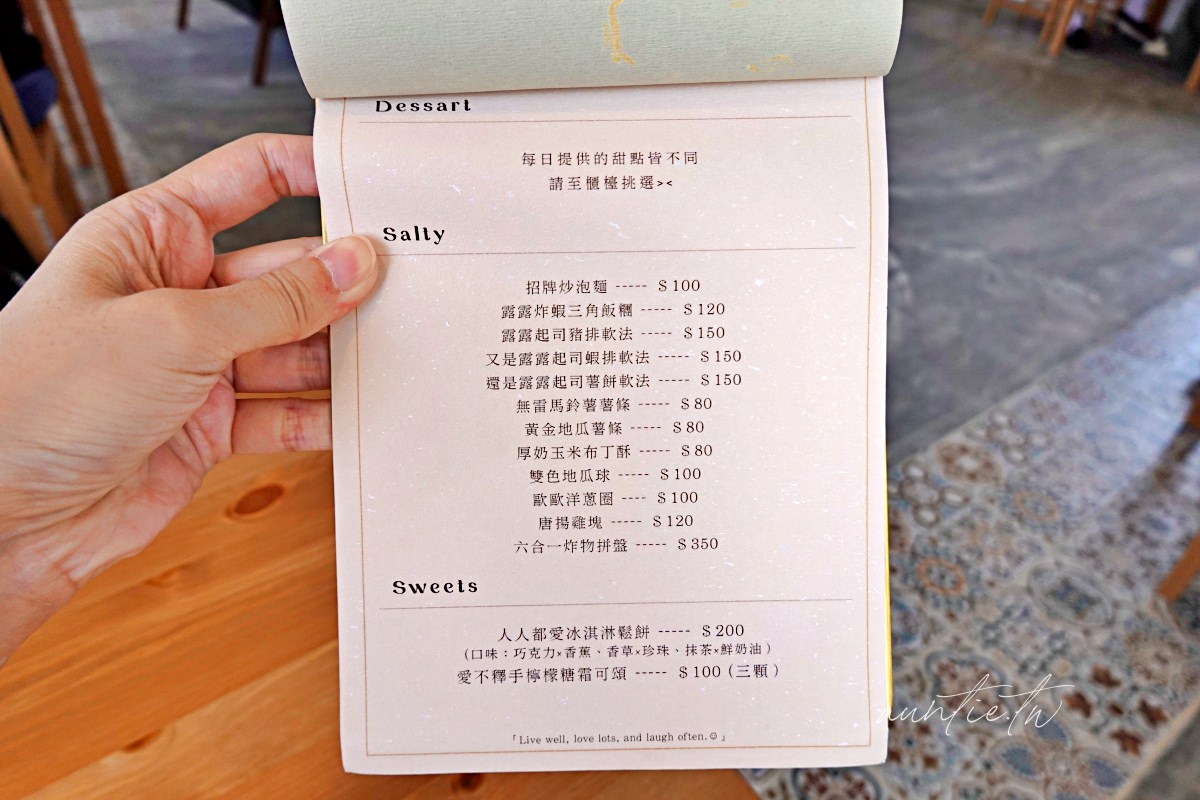 Dessart
每日提供的甜點皆不同
請至櫃檯挑選><
Salty
招牌炒泡麵 ----- $100
露露炸蝦三角飯糰 ----- $120
露露起司豬排軟法 ----- $150
又是露露起司蝦排軟法 ----- $150
還是露露起司薯餅軟法 ----- $150
無雷馬鈴薯薯條 ----- $80
黃金地瓜薯條 ----- $80
厚奶玉米布丁酥 ----- $80
雙色地瓜球 ----- $100
歐歐洋蔥圈 ---- $100
唐揚雞塊 ----- $120
六合一炸物拼盤 ----- $350
Sweets
人人都愛冰淇淋鬆餅 ----- $200
(口味：巧克力×香蕉、香草×珍珠、抹茶×鮮奶油)
愛不釋手檸檬糖霜可頌 ----- $100 (三顆)
「Live well, love lots, and laugh often.☺」
auntie.tw